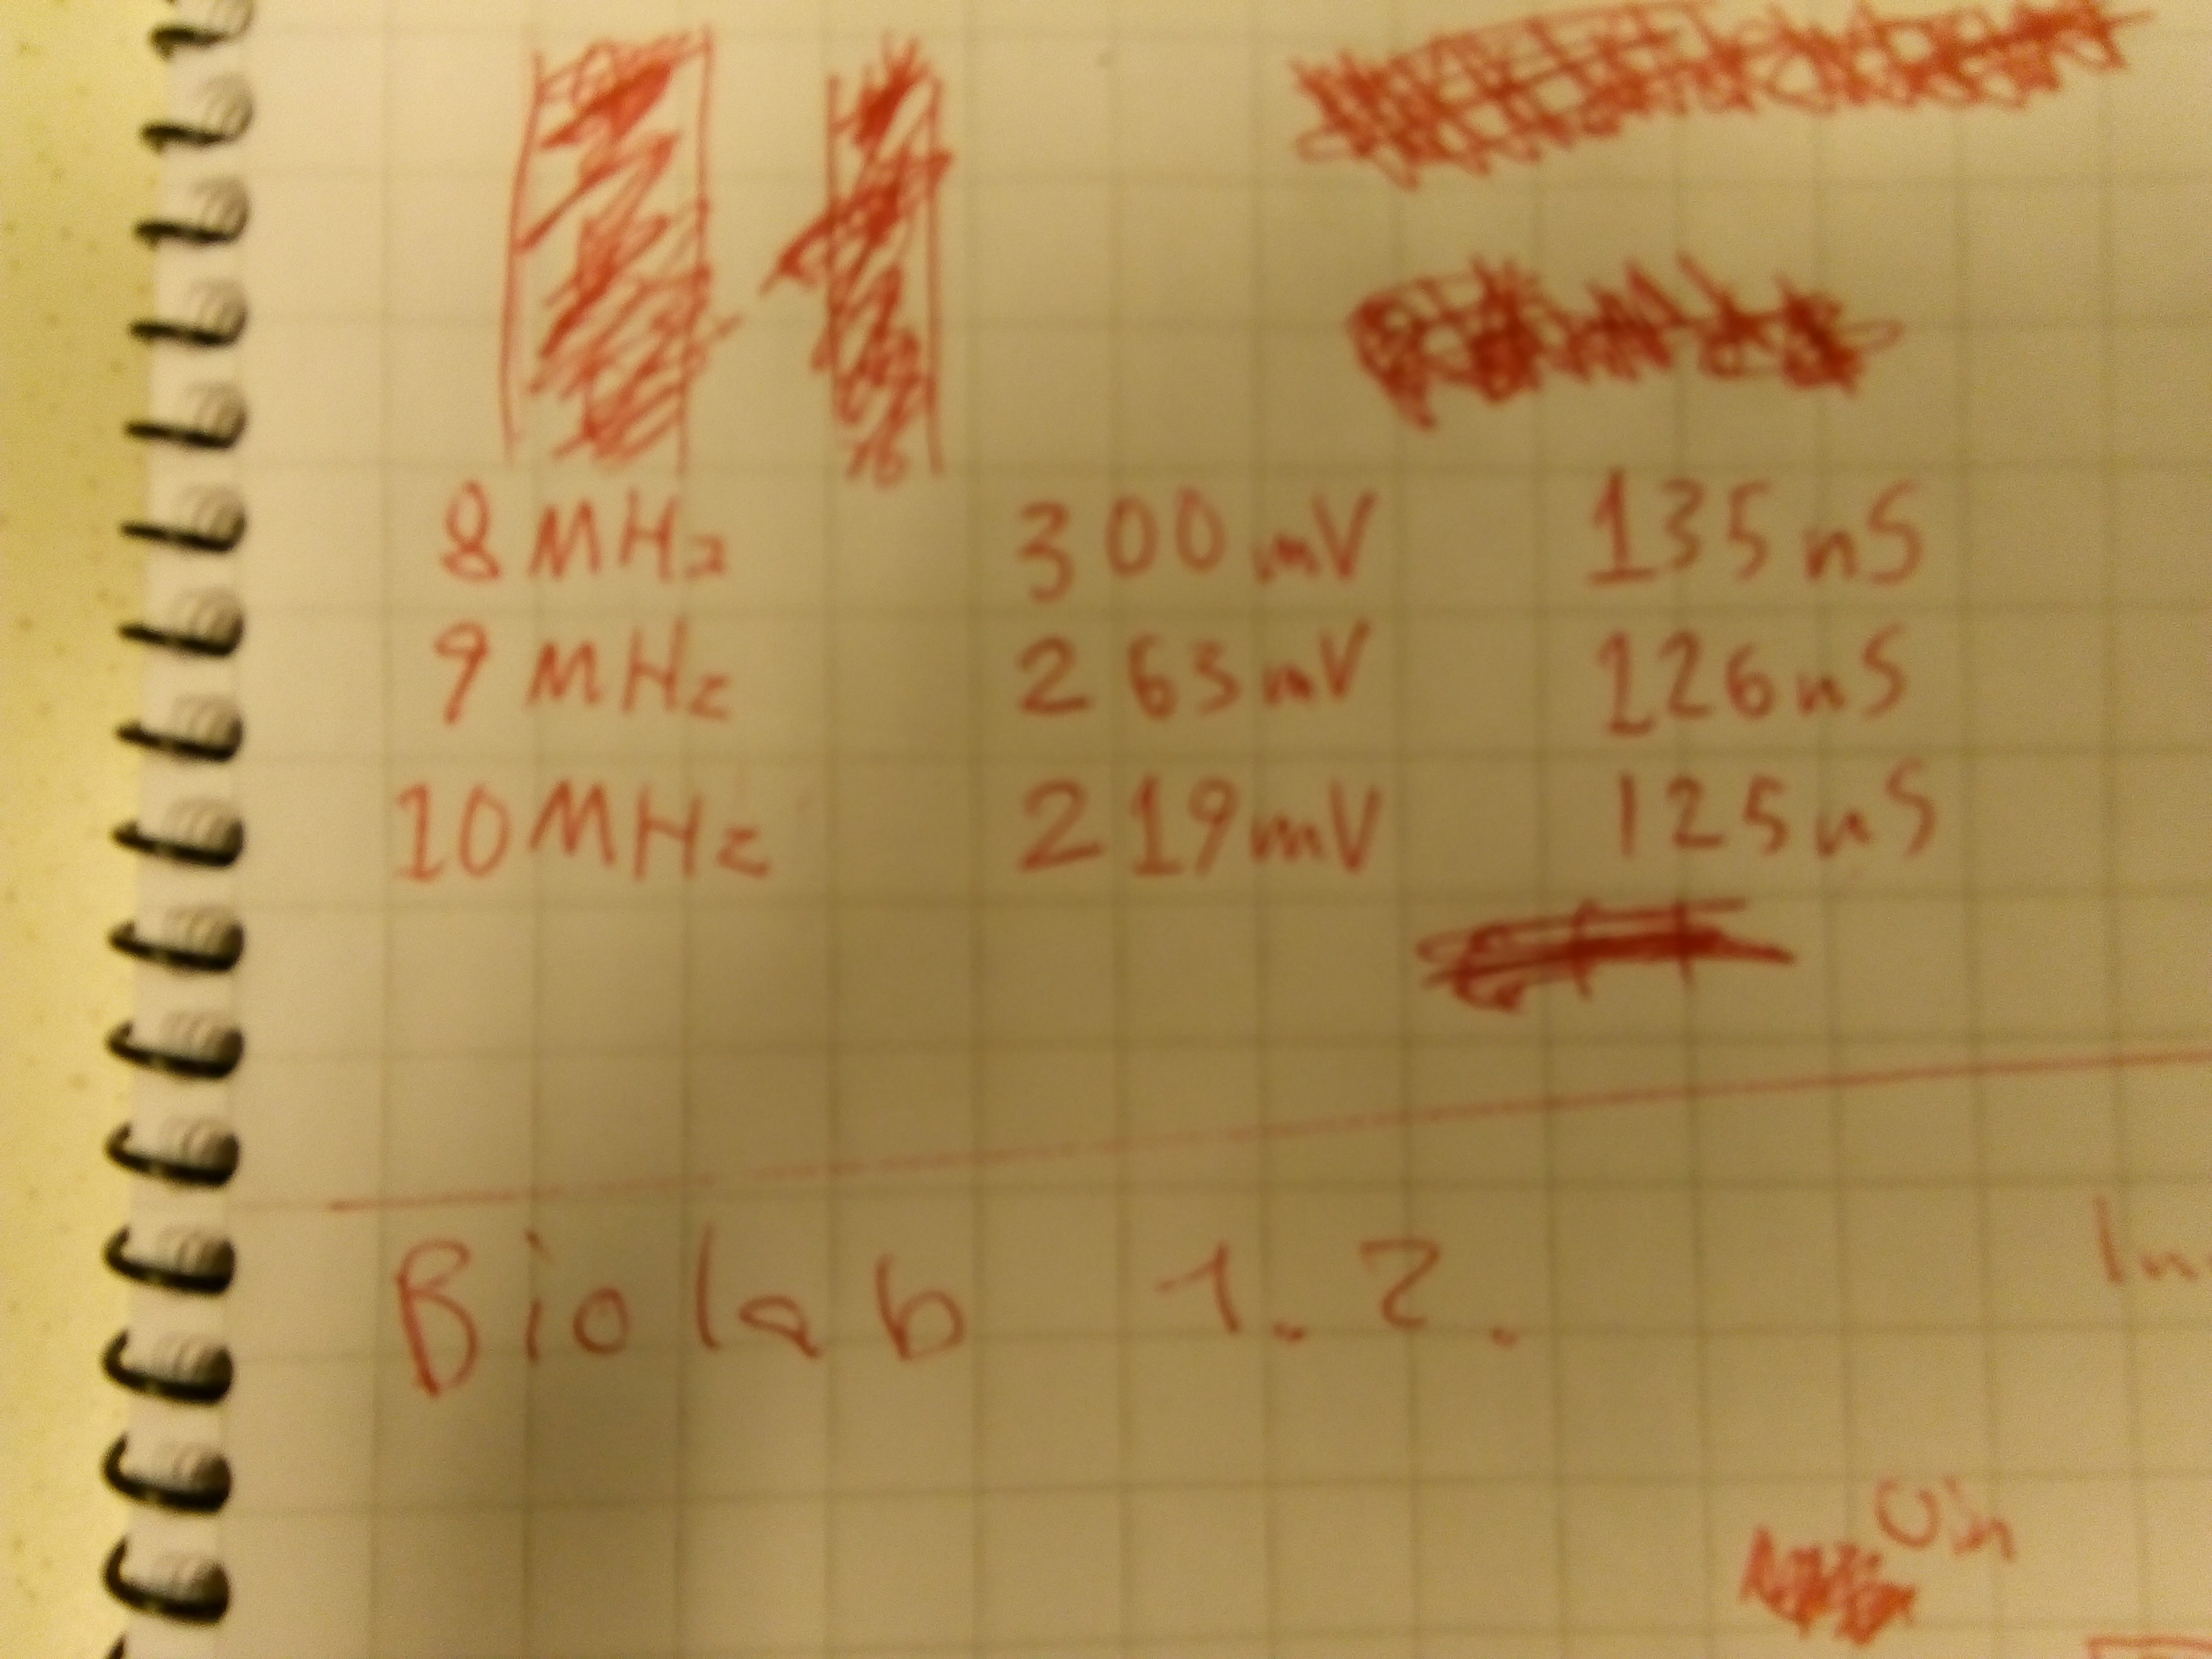 8 MHz 300 mV 135 nS
9 MHz 263 mV 126 nS
10 MHz 219 mV 125 nS
Biolab 1.2.